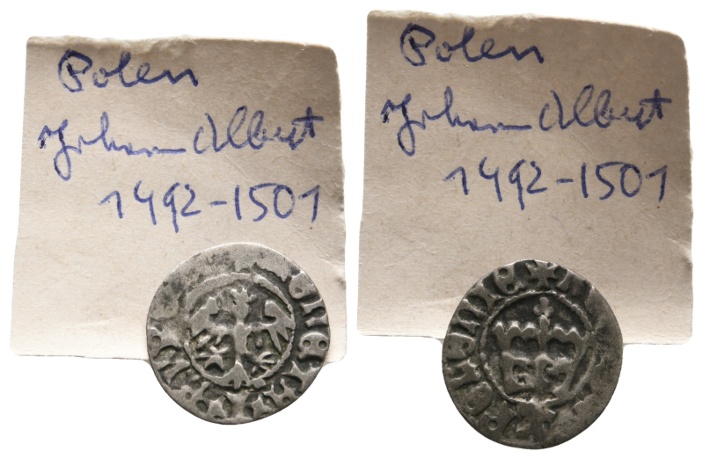 Polen
Johann Albert
1492-1501
Polen
Johann Albert
1492-1501